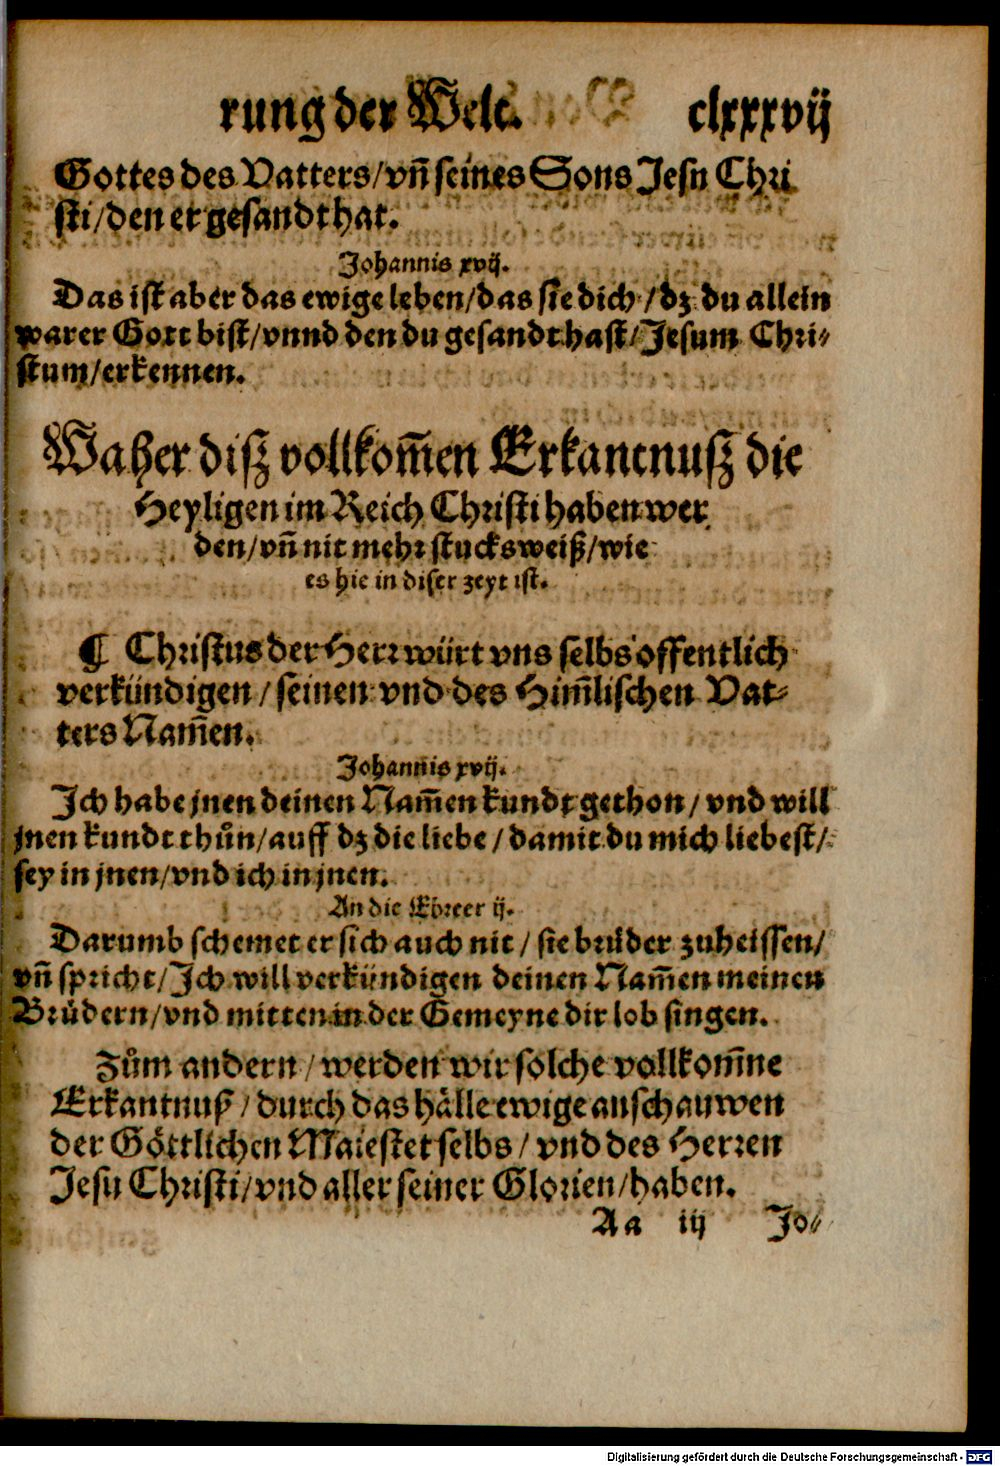 rung der Welt. clxxxvij
Gottes des Vatters/vñ seines Sons Jesu Chri
sti/den er gesandt hat.
Johannis xvij.
Das ist aber das ewige leben/das sie dich/dz du allein
warer Gott bist/vnnd den du gesandt hast/Jesum Chri-
stum/erkennen.
Waher disz vollkom̃en Erkantnusz die
Heyligen im Reich Christi haben wer
den/vñ nit mehr stucksweiß/wie
es hie in diser zeyt ist.
¶ Christus der Herr würt vns selbs offentlich
verkündigen/seinen vnd des Him̃lischen Vat-
ters Nam̃en.
Johannis xvij.
Ich habe jnen deinen Nam̃en kundt gethon/vnd will
jnen kundt thůn/auff dz die liebe/damit du mich liebest/
sey in jnen/vnd ich in jnen.
An die Ebreer ij.
Darumb schemet er sich auch nit/sie brüder zuheissen/
vñ spricht/Ich will verkündigen deinen Nam̃en meinen
Brüdern/vnd mitten in der Gemeyne dir lob singen.
Zům andern/werden wir solche vollkom̃ne
Erkantnuß/durch das hälle ewige anschauwen
der Göttlichen Maiestet selbs/vnd des Herren
Jesu Christi/vnd aller seiner Glorien/haben.
Aa iij Jo-
Digitalisierung gefördert durch die Deutsche Forschungsgemeinschaft - DFG